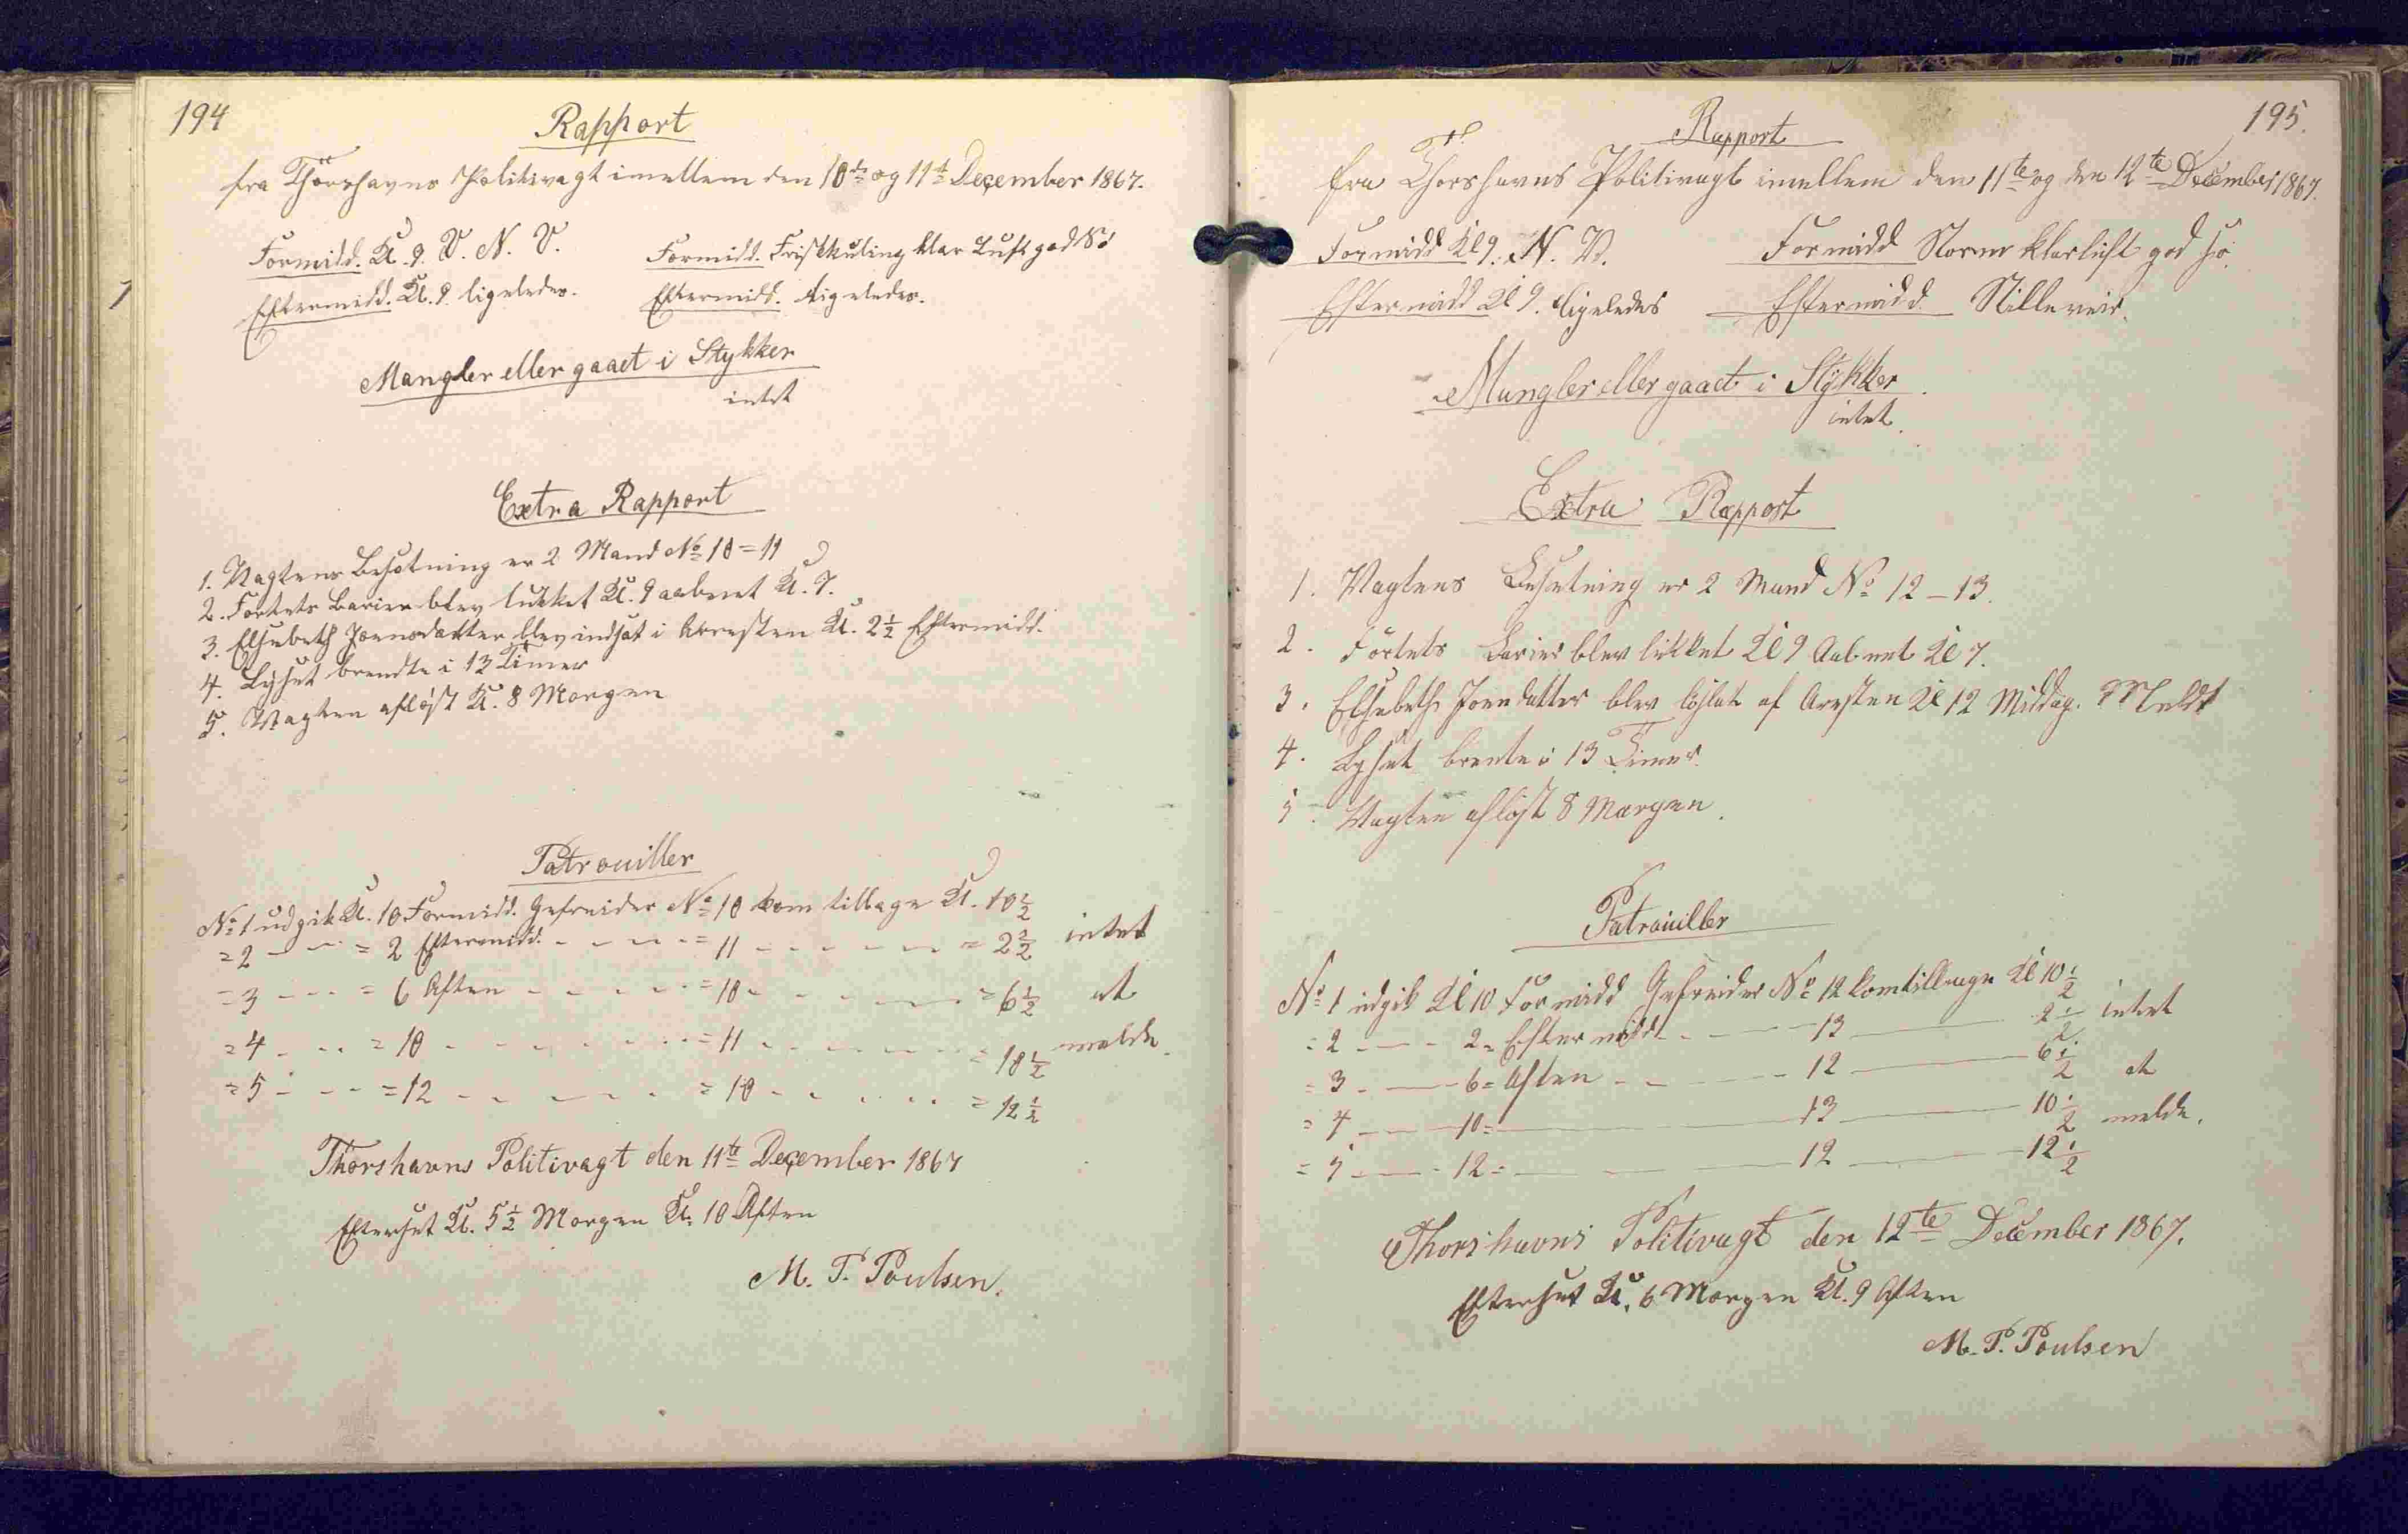 194
Rapport
fra Thorshavns Politivagt imellem den 10de og 11te December 1867.
Formidd. Kl. 9. V. N. V.
Eftermidd. Kl. 9. ligeledes.
Formidd. Friskkuling klar Luft god Sö
Eftermidd. ligeledes.
Mangler eller gaaet i Stykker
intet
Extra Rapport
1. Vagtens Besætning er 2 Mand No 10 = 11
2. Fortets Barier blev lukket Kl. 9 aabnet Kl. 7.
3. Elsebeth Joensdatter blev indsat i Arresten Kl. 2 1/2 Eftermidd.
4. Lyset brendte i 13 Timer
5. Vagten aflöst Kl. 8 Morgen
Patrouiller
No 1 udgik Kl. 10 Formidd. Gefreider No 10 kom tilbage Kl. 10 1/2
= 2 - - - = 2 Eftermidd. - - - - = 11 - - - - - = 2 1/2 intet
= 3 - - - = 6 Aften - - - - - = 10 - - - - - = 6 1/2 at
= 4 - - - = 10 - - - - - - = 11 - - - - - = 10 1/2 melde.
= 5 - - - = 12 - - - - - = 10 - - - - - = 12 1/2
Thorshavns Politivagt den 11te December 1867
Efterset Kl. 5 1/2 Morgen Kl. 10 Aften
M. P. Poulsen.
195.
Rapport
fra Thorshavns Politivagt imellem den 11te og den 12te December 1867.
Formidd Kl 9. N. V.
Eftermidd Kl 9. ligeledes
Formidd Storm klarluft god sö.
Eftermidd. Stilleveir.
Mangler eller gaaet i Stykker.
intet.
Extra Rapport
1. Vagtens Besætning er 2 Mand No 12 - 13.
2. Fortets Barier blev lukket Kl 9 Aabnet Kl 7.
3. Elsebeth Joensdatter blev löslat af Aresten Kl 12 Middag.
4. Lyset brente i 13 Timer.
5. Vagten aflöst 8 Morgen.
Patrouiller
No 1 udgik Kl 10 Formidd Gefreider No 12 kom tilbage Kl 10 1/2
= 2 - - - 2 = Eftermidd - - - 13 - - - 2 1/2 intet
= 3 - - - 6 = Aften - - - 12 - - - 6 1/2 at
= 4 - - - 10 = - - - 13 - - - 10 1/2 melde.
= 5 - - - 12 = - - - 12 - - - 12 1/2
Thorshavns Politivagt den 12te December 1867.
Efterset Kl. 6 Morgen Kl. 9 Aften
M. P. Poulsen